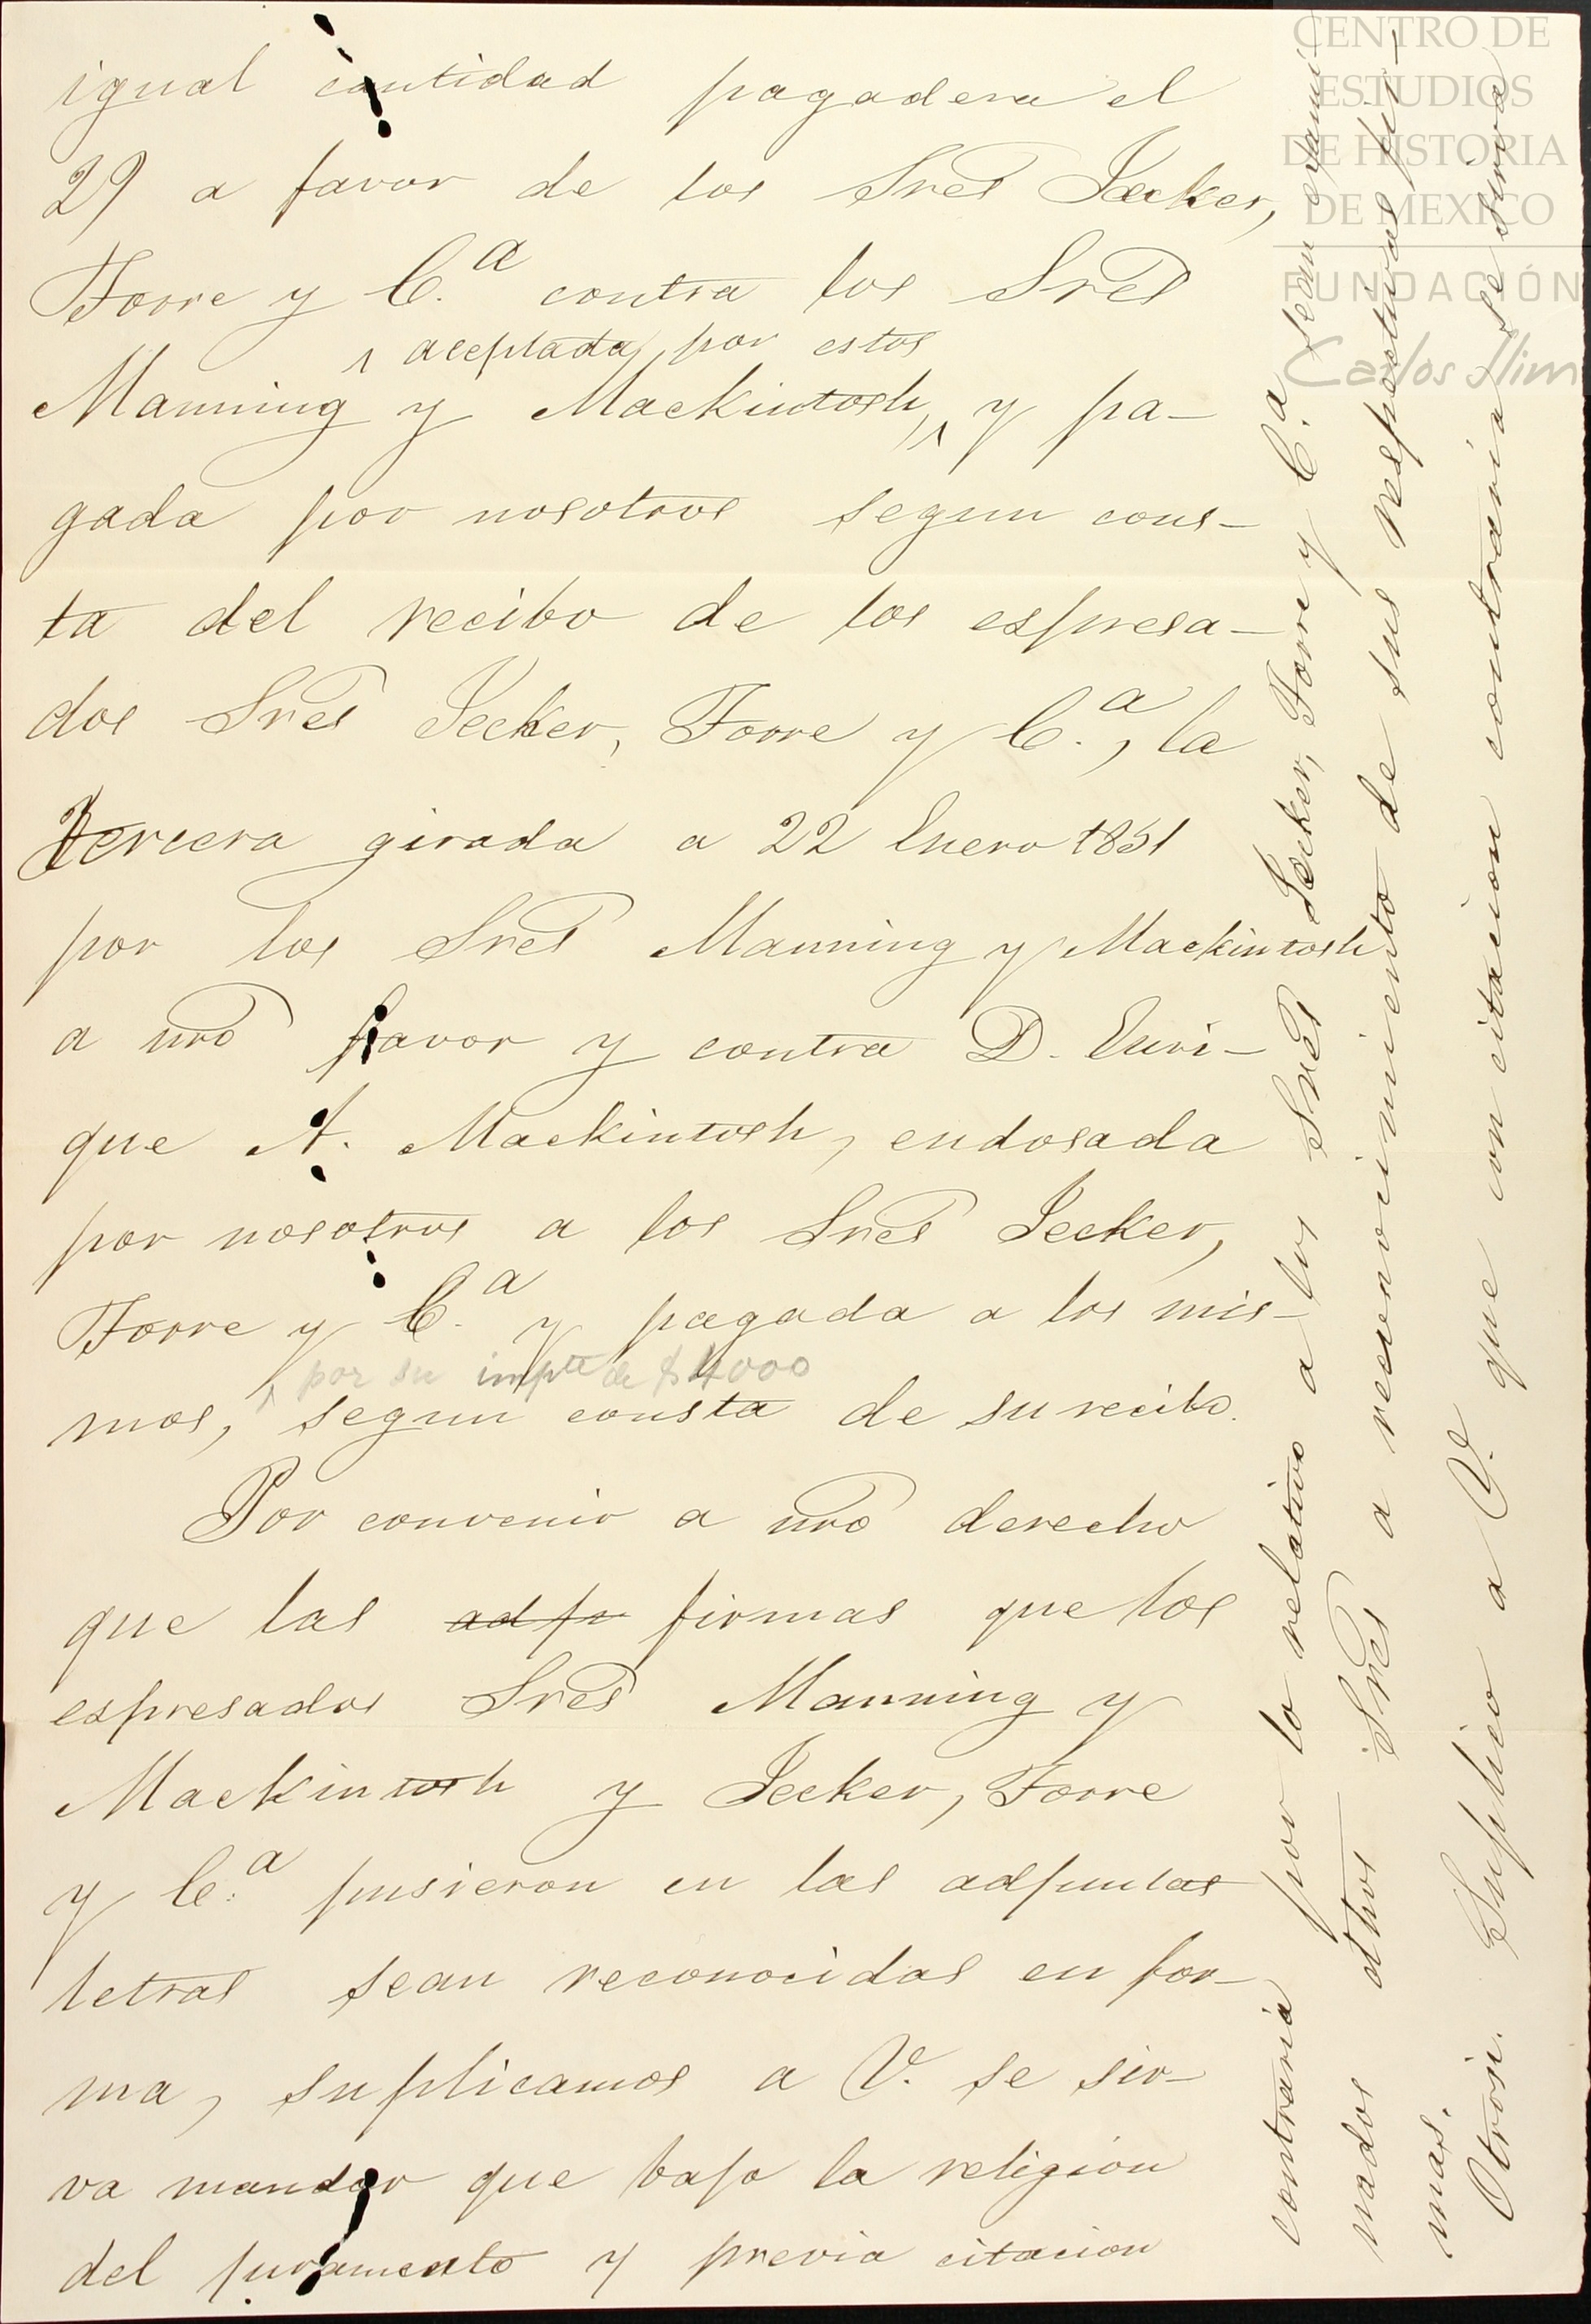 igual cantidad pagadera el
29 a favor de los Sres Jecker,
Torre y C.a contra los Sres
aceptada por estos
Manning y Mackintosh, y pa-
gada por nosotros segun cons-
ta del recibo de los espresa-
dos Sres Jecker, Torre y C.a, la
tercera girada a 22 Enero 1851
por los Sres Manning y Mackintosh
a nro favor y contra D. Enri-
que A. Mackintosh, endosada
por nosotros a los Sres Jecker,
Torre y C.a y pagada a los mis-
por su impte de $4000
mos, segun consta de su recibo.
Por convenir a nro derecho
que las adjo firmas que los
espresados Sres Manning y
Mackintosh y Jecker, Torre
y C.a pusieron en las adjuntas
letras sean reconocidas en for-
ma, suplicamos a V. se sir-
va mandar que bajo la religion
del juramento y previa citacion
contraria por lo relativo a los Sres Jecker, Torre y C.a sean exami-
nados dhos Sres a reconocimiento de sus respectivas fir-
mas.
Otrosi. Suplico a V. que con citacion contraria se sirva
CENTRO DE
ESTUDIOS
DE HISTORIA
DE MEXICO
FUNDACIÓN
Carlos Slim